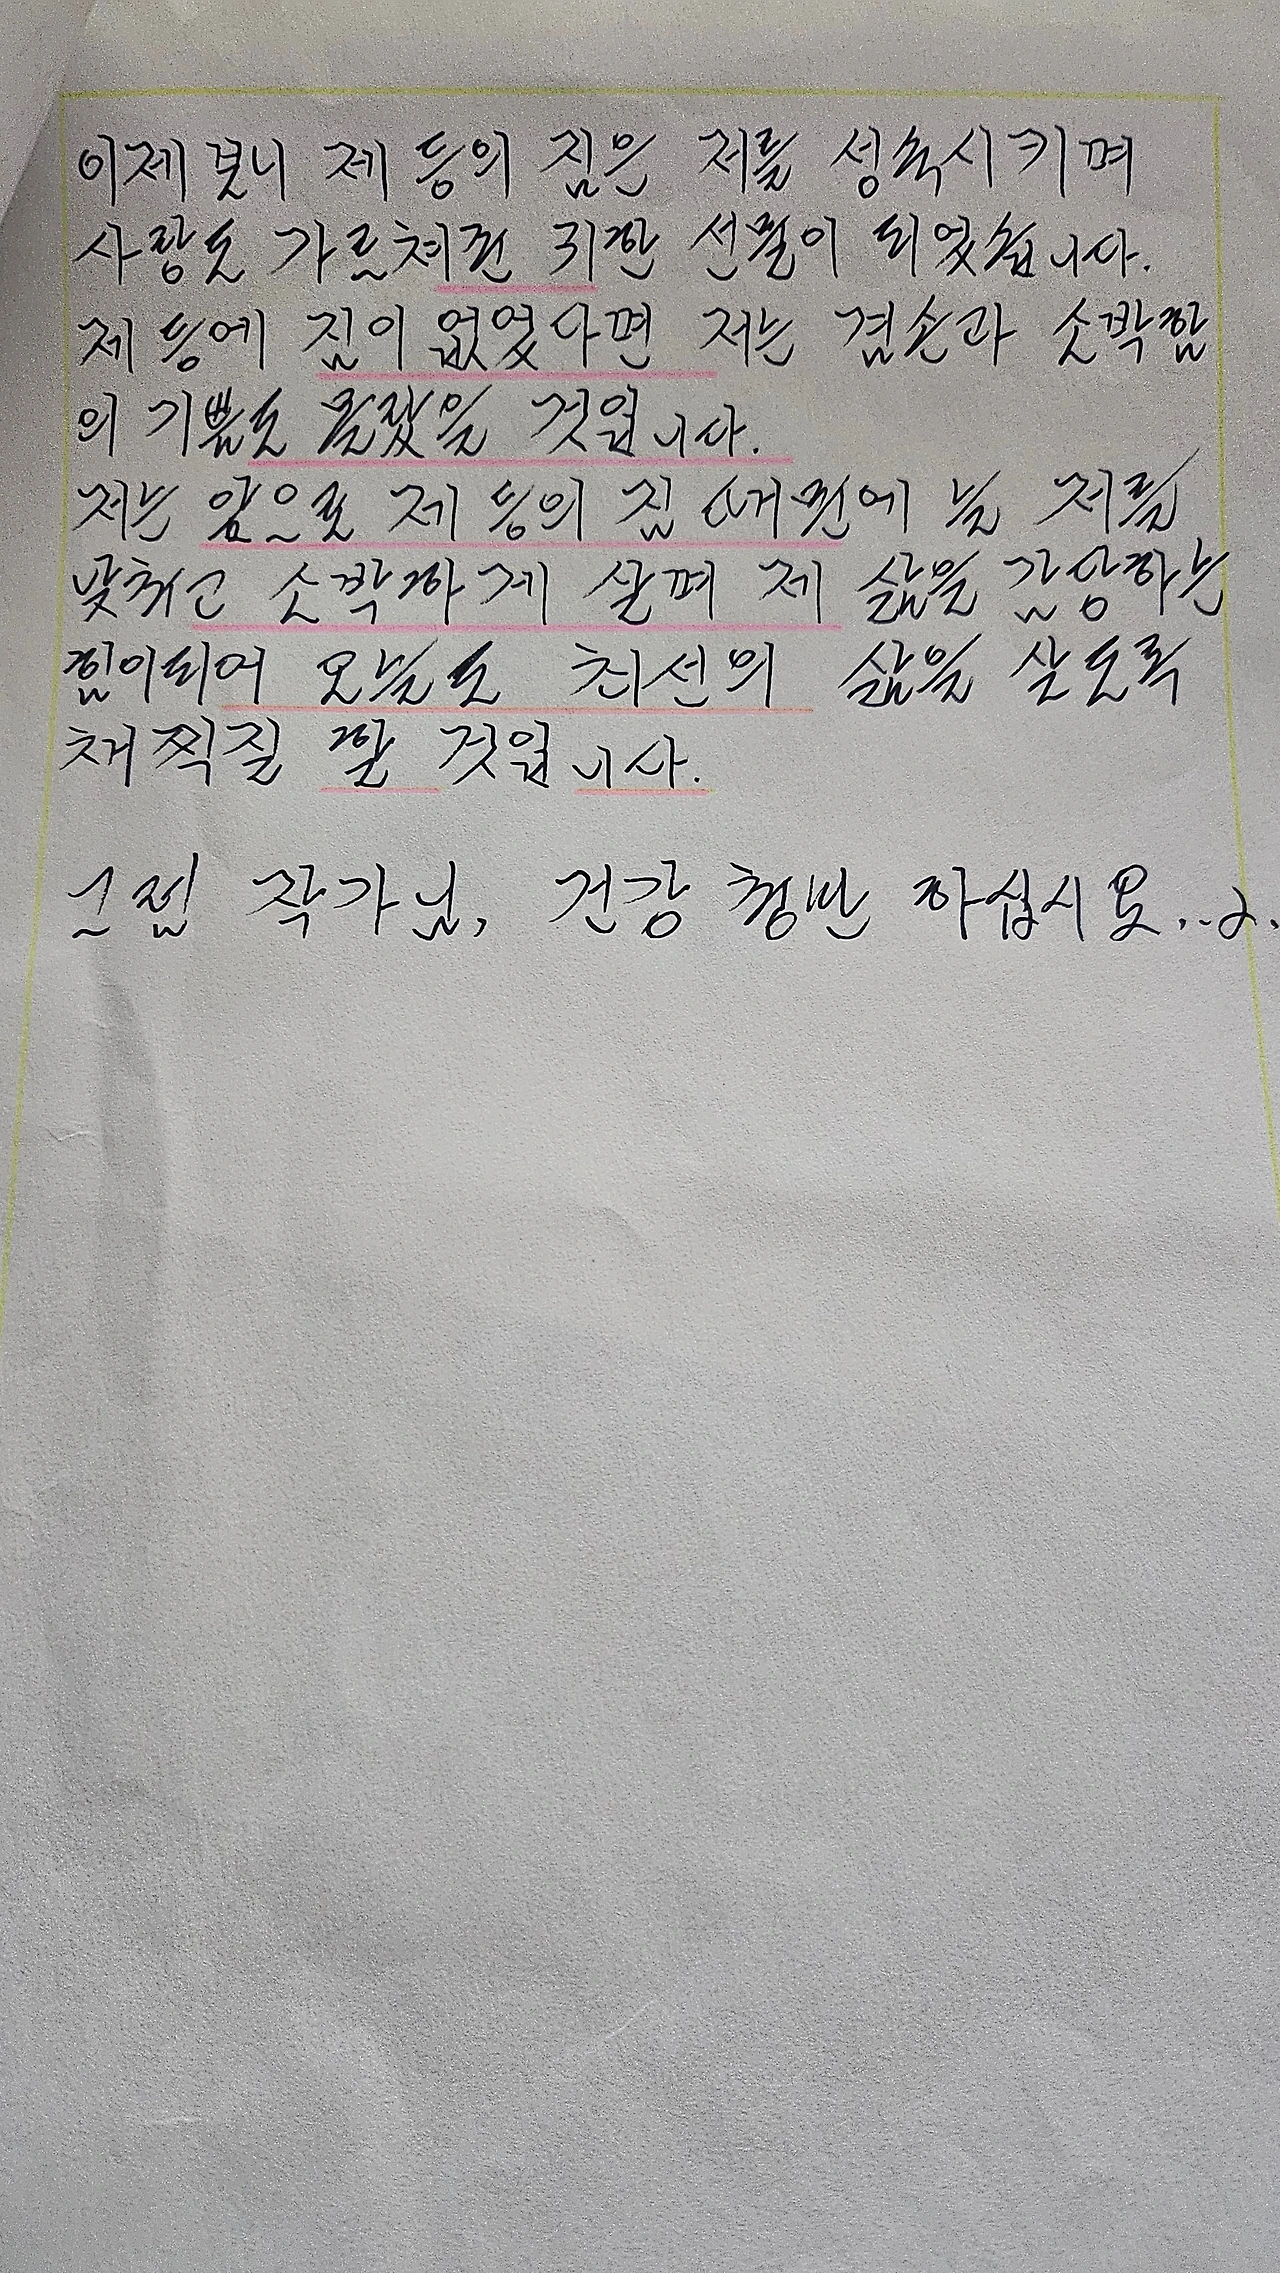 이제 보니 제 등의 짐은 저를 성숙시키며
사랑도 가르쳐준 귀한 선물이 되었습니다.
제 등에 짐이 없었다면 저는 겸손과 소박함
의 기쁨도 몰랐을 것입니다.
저는 앞으로 제 등의 짐 때문에 늘 저를
낮추고 소박하게 살며 제 삶을 감당하는
힘이되어 오늘도 최선의 삶을 살도록
채찍질 할 것입니다.
그럼 작가님, 건강 청반 하십시요...